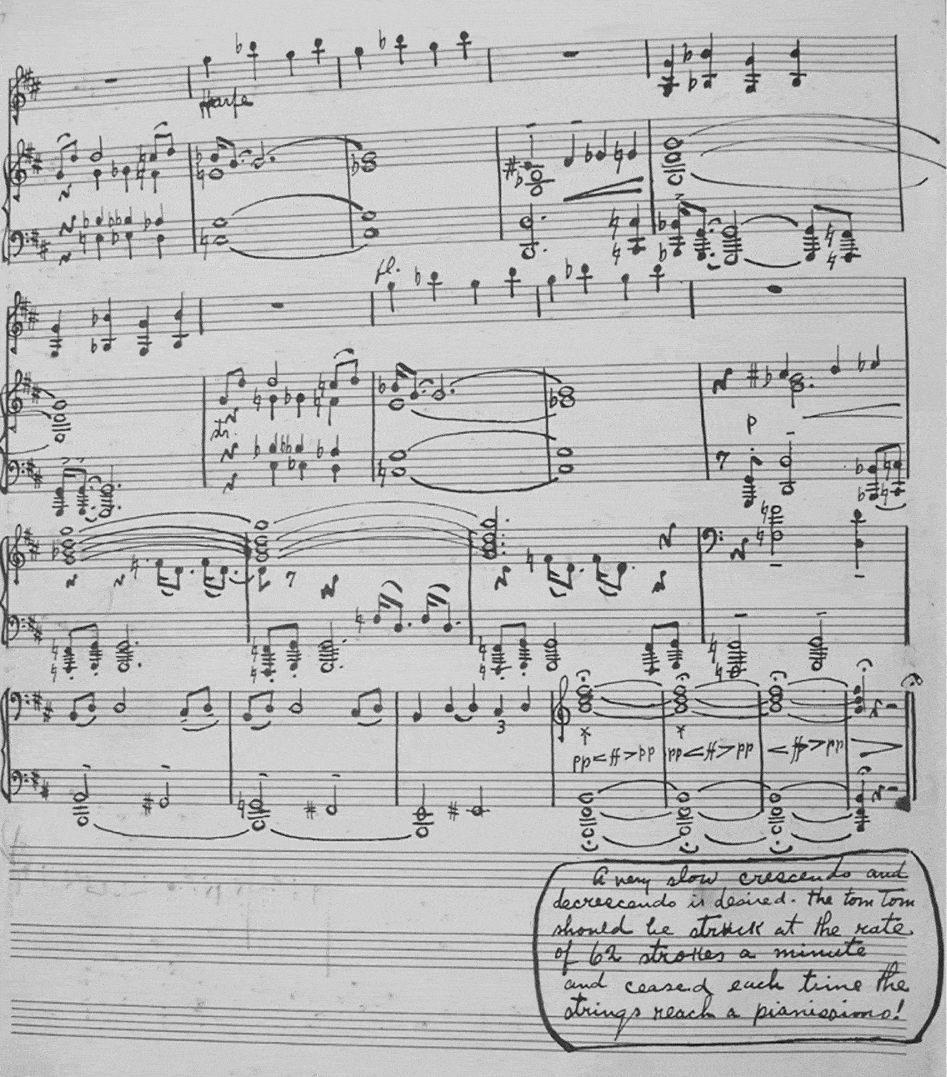 Harfe
fl.
str.
p
3
pp<ff>pp pp<ff>pp <ff>pp >
A very slow crescendo and
decrescendo is desired. The tom tom
should be struck at the rate
of 62 strokes a minute
and ceased each time the
strings reach a pianissimo!